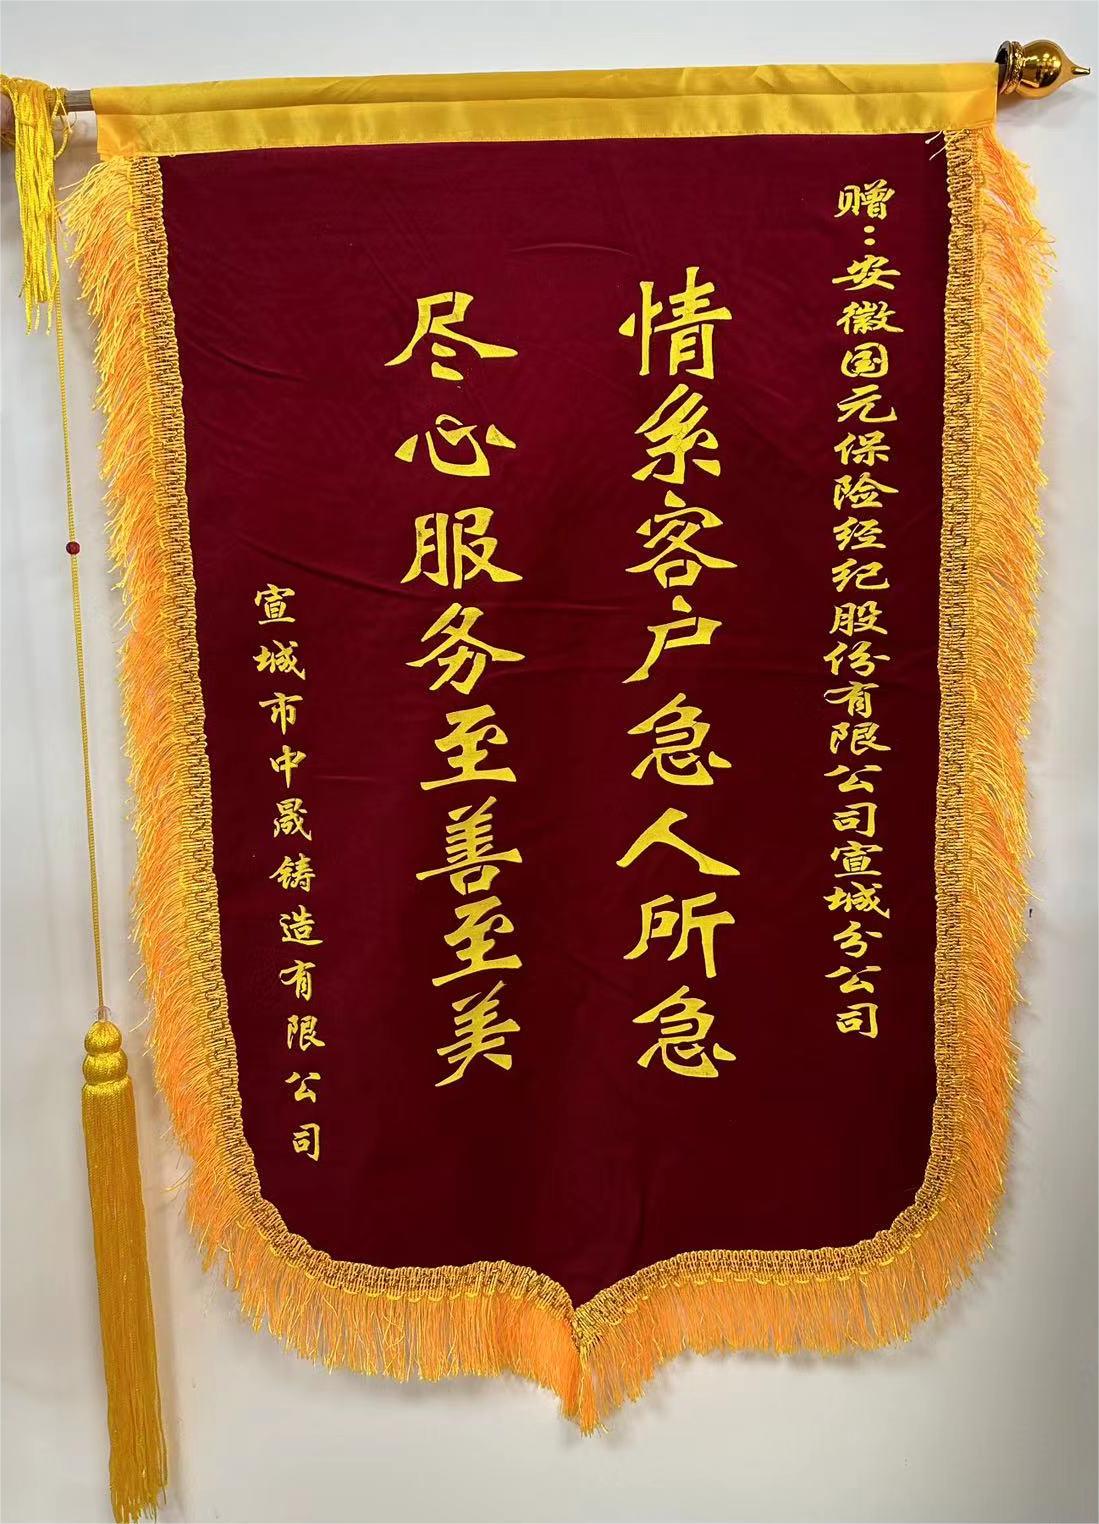 赠：安徽国元保险经纪股份有限公司宣城分公司
情系客户急人所急
尽心服务至善至美
宣城市中晟铸造有限公司